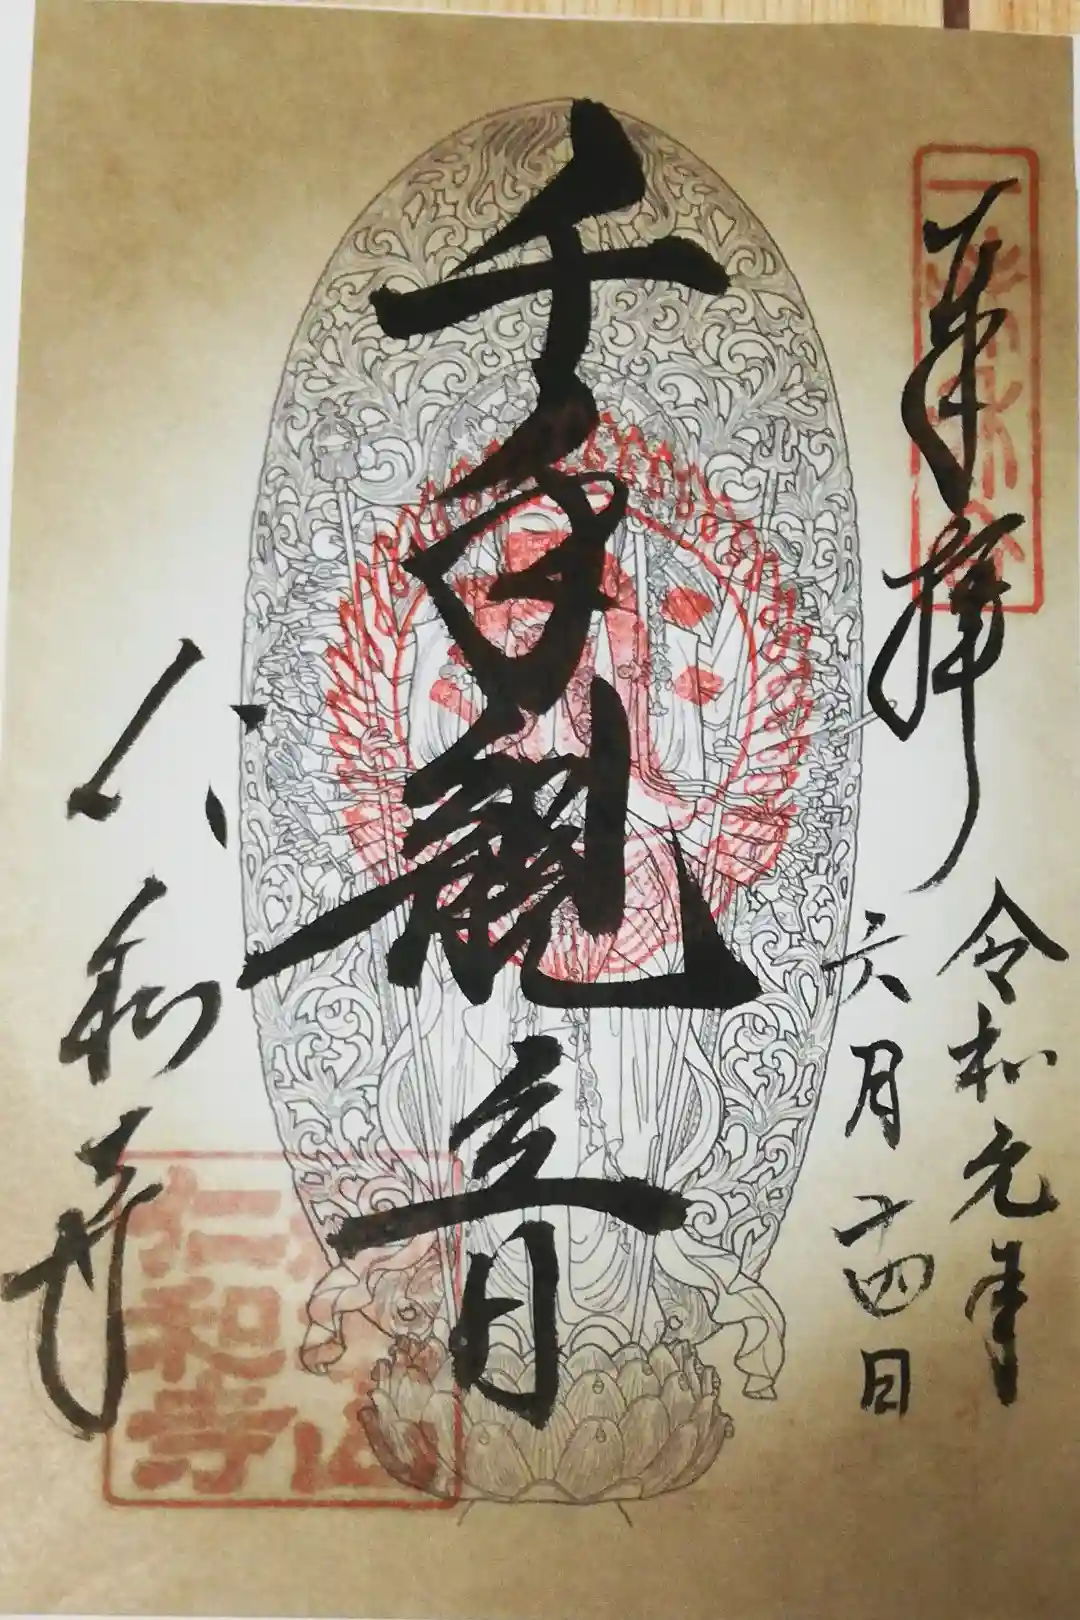 奉拝
令和元年
六月十四日
千手觀音
仁和寺
仁和寺